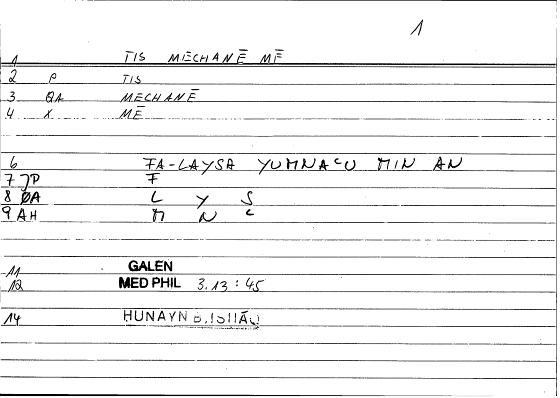 1
1 TIS MĒCHANĒ MĒ
2 P TIS
3 QA MĒCHANĒ
4 X MĒ
6 FA-LAYSA YUMNAʿU MIN AN
7 JP F
8 ØA L Y S
9 AH M N ʿ
11 GALEN
12 MED PHIL 3.13:45
14 HUNAYN B.ISHĀQ